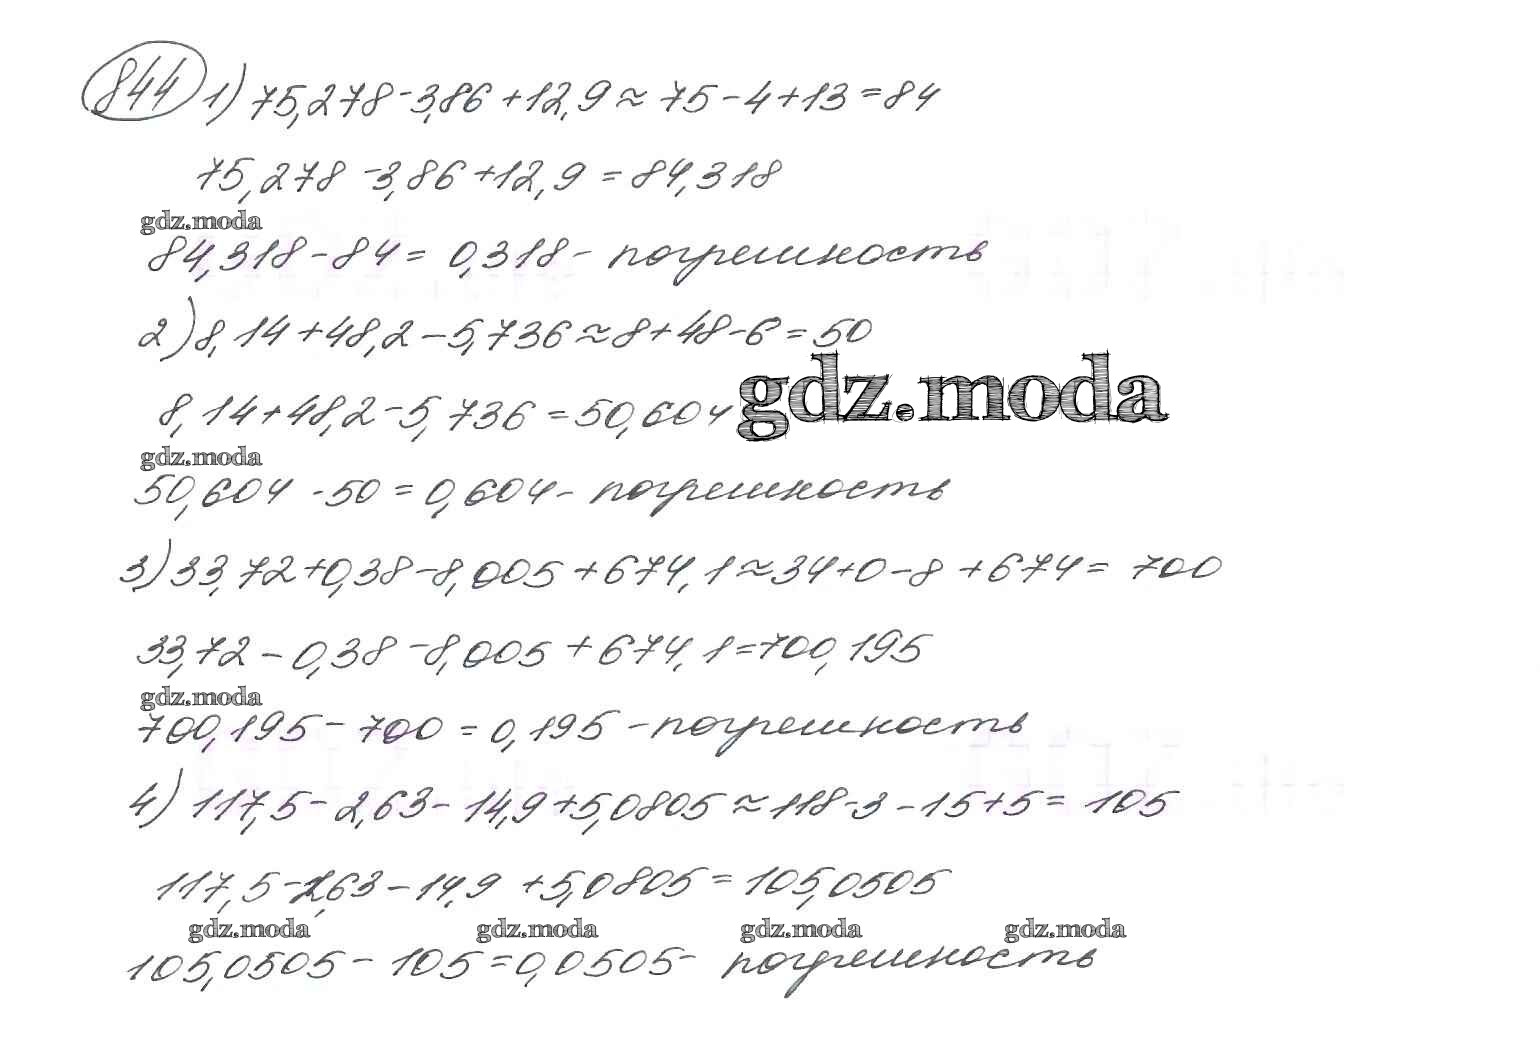 844 1) 75,278-3,86+12,9≈75-4+13=84
75,278-3,86+12,9=84,318
gdz.moda
84,318-84=0,318- погрешность
2) 8,14+48,2-5,736≈8+48-6=50
gdz.moda
8,14+48,2-5,736=50,604
gdz.moda
50,604-50=0,604- погрешность
3) 33,72+0,38-8,005+674,1≈34+0-8+674=700
33,72-0,38-8,005+674,1=700,195
gdz.moda
700,195-700=0,195-погрешность
4) 117,5-2,63-14,9+5,0805≈118-3-15+5=105
117,5-2,63-14,9+5,0805=105,0505
gdz.moda gdz.moda gdz.moda gdz.moda
105,0505-105=0,0505- погрешность